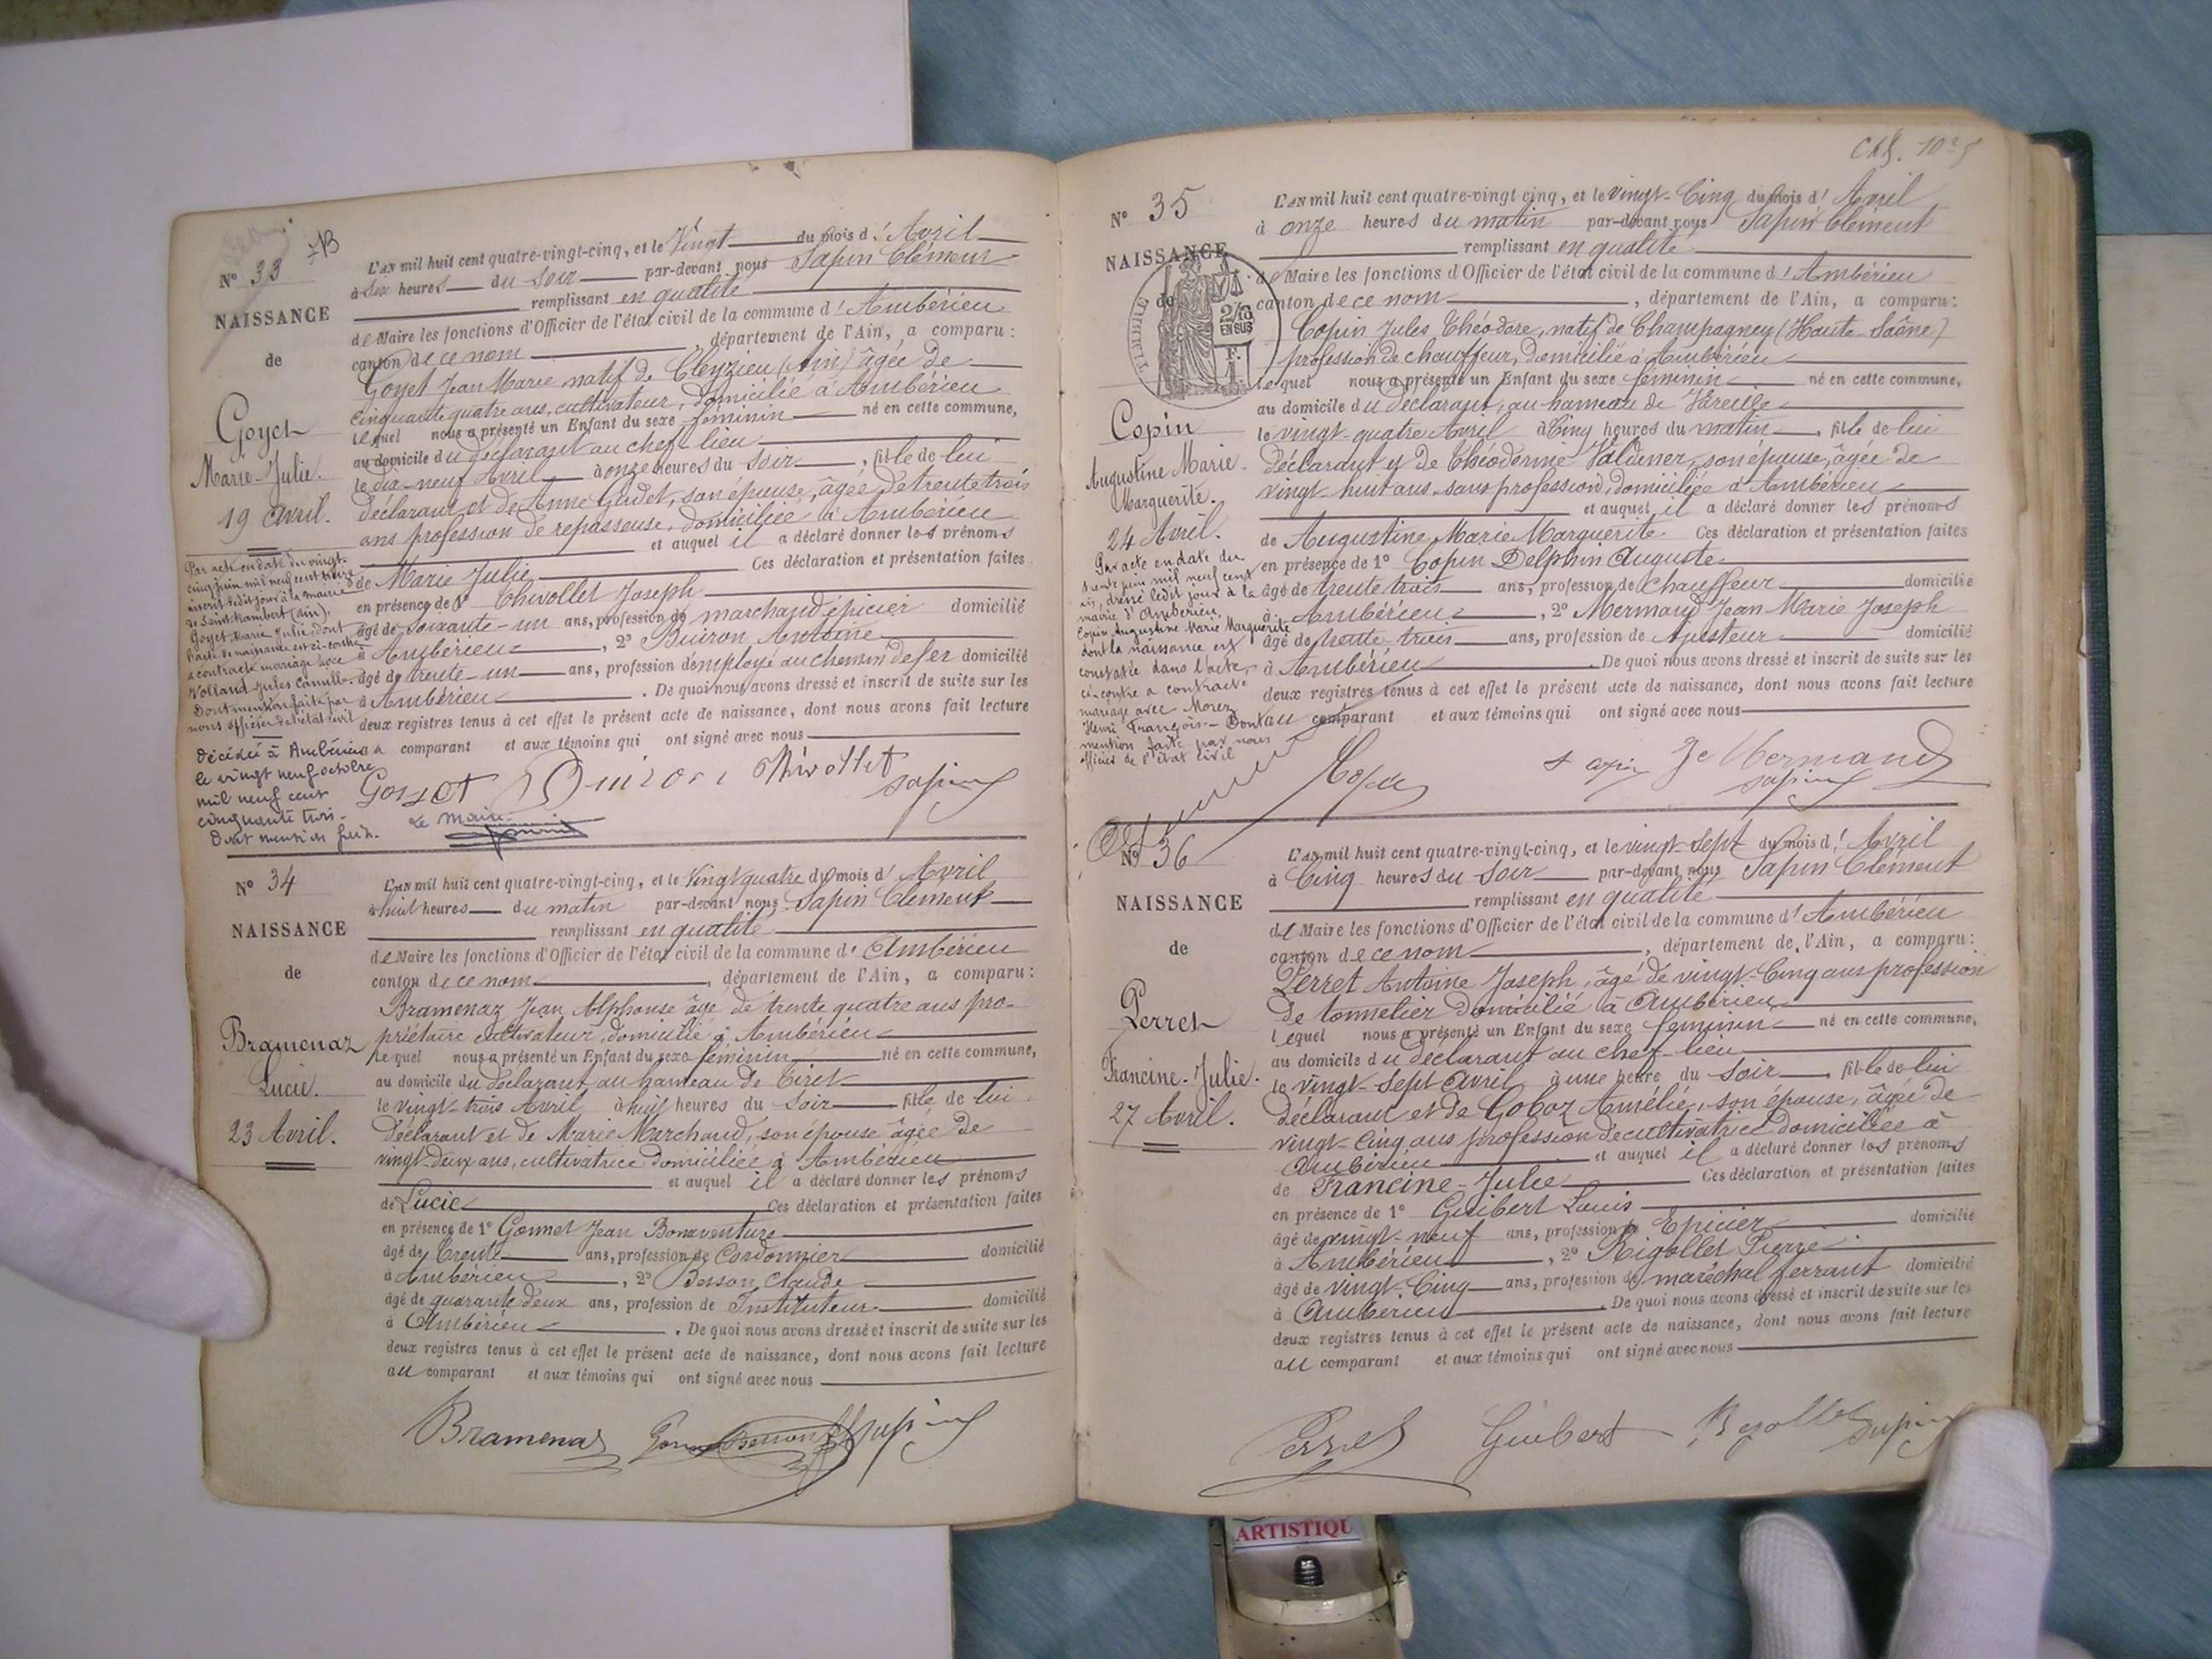 Nº 33
NAISSANCE
de
Goyet
Marie-Julie.
19 Avril.
Par acte en date du vingt-
cinq juin mil neuf cent treize
inscrit ledit jour à la mairie
de Saint-Rambert (Ain),
Goyet Marie Julie, dont
l'acte de naissance est ci-contre
a contracté mariage avec
Volland Jules Camille.
Dont mention faite par
nous officier de l'état civil
Décédée à Ambérieu
le vingt neuf octobre
mil neuf cent
cinquante trois.
Dont mention faite.
Le Maire
L'an mil huit cent quatre-vingt-cinq, et le Vingt du mois d'Avril
à six heures du soir par-devant nous Sapin Clément
remplissant en qualité
de Maire les fonctions d'Officier de l'état civil de la commune d'Ambérieu
canton de ce nom, département de l'Ain, a comparu :
Goyet Jean Marie natif de Cleyzieu (Ain) âgée de
Cinquante quatre ans, cultivateur, domicilié à Ambérieu
lequel nous a présenté un Enfant du sexe féminin né en cette commune,
au domicile du déclarant au chef-lieu
le dix-neuf Avril à onze heures du soir, fille de lui
déclarant et de Anne Gudet, son épouse, âgée de trente trois
ans profession de repasseuse, domiciliée à Ambérieu
et auquel il a déclaré donner les prénoms
de Marie Julie Ces déclaration et présentation faites
en présence de 1º Chivollet Joseph
âgé de soixante-un ans, profession de marchand épicier domicilié
à Ambérieu, 2º Buiron Antoine
âgé de trente-un ans, profession d'employé au chemin de fer domicilié
à Ambérieu. De quoi nous avons dressé et inscrit de suite sur les
deux registres tenus à cet effet le présent acte de naissance, dont nous avons fait lecture
au comparant et aux témoins qui ont signé avec nous
Goyet Buiron Chivollet Sapin
Nº 34
NAISSANCE
de
Bramenaz
Lucie.
23 Avril.
L'an mil huit cent quatre-vingt-cinq, et le Vingt quatre du mois d'Avril
à huit heures du matin par-devant nous Sapin Clément
remplissant en qualité
de Maire les fonctions d'Officier de l'état civil de la commune d'Ambérieu
canton de ce nom, département de l'Ain, a comparu :
Bramenaz Jean Alphonse âgé de trente quatre ans pro-
priétaire cultivateur, domicilié à Ambérieu
lequel nous a présenté un Enfant du sexe féminin né en cette commune,
au domicile du déclarant, au hameau de Tiret
le vingt-trois Avril à huit heures du soir fille de lui
déclarant et de Marie Marchand, son épouse âgée de
vingt deux ans, cultivatrice domiciliée à Ambérieu
et auquel il a déclaré donner les prénoms
de Lucie Ces déclaration et présentation faites
en présence de 1º Gonnet Jean Bonaventure
âgé de trente ans, profession de Cordonnier domicilié
à Ambérieu, 2º Besson Claude
âgé de quarante deux ans, profession de Instituteur domicilié
à Ambérieu. De quoi nous avons dressé et inscrit de suite sur les
deux registres tenus à cet effet le présent acte de naissance, dont nous avons fait lecture
au comparant et aux témoins qui ont signé avec nous
Bramenaz Gonnet Besson Sapin
Nº 35
NAISSANCE
de
TIMBRE
2/10
EN SUS
Copin
Augustine Marie
Marguerite.
24 Avril.
Par acte en date du
mil neuf cent
six, dressé ledit jour à la
mairie d'Ambérieu
Copin Augustine Marie Marguerite
dont la naissance est
constatée dans l'acte
ci-contre a contracté
mariage avec Morez
Henri François. Dont
mention faite par nous
officier de l'état civil
L'an mil huit cent quatre-vingt cinq, et le vingt-Cinq du mois d'Avril
à onze heures du matin par-devant nous Sapin Clément
remplissant en qualité
de Maire les fonctions d'Officier de l'état civil de la commune d'Ambérieu
canton de ce nom, département de l'Ain, a comparu :
Copin Jules Théodore, natif de Champagney (Haute-Saône)
profession de chauffeur, domicilié à Ambérieu
lequel nous a présenté un Enfant du sexe féminin né en cette commune,
au domicile du déclarant, au hameau de Vareille
le vingt-quatre Avril à Cinq heures du matin, fille de lui
déclarant et de Théodorine Valdener, son épouse, âgée de
vingt-huit ans, sans profession, domiciliée à Ambérieu
et auquel il a déclaré donner les prénoms
de Augustine Marie Marguerite Ces déclaration et présentation faites
en présence de 1º Copin Delphin Auguste
âgé de trente trois ans, profession de Chauffeur domicilié
à Ambérieu, 2º Mermand Jean Marie Joseph
âgé de trente-trois ans, profession de Ajusteur domicilié
à Ambérieu. De quoi nous avons dressé et inscrit de suite sur les
deux registres tenus à cet effet le présent acte de naissance, dont nous avons fait lecture
au comparant et aux témoins qui ont signé avec nous
Copin Je Mermand
Sapin
Nº 36
NAISSANCE
de
Perret
Francine-Julie.
27 Avril.
L'an mil huit cent quatre-vingt-cinq, et le vingt-sept du mois d'Avril
à Cinq heures du soir par-devant nous Sapin Clément
remplissant en qualité
de Maire les fonctions d'Officier de l'état civil de la commune d'Ambérieu
canton de ce nom, département de l'Ain, a comparu :
Perret Antoine Joseph, âgé de vingt-Cinq ans profession
de tonnelier domicilié à Ambérieu
lequel nous a présenté un Enfant du sexe féminin né en cette commune,
au domicile du déclarant au chef-lieu
le vingt-sept Avril à une heure du soir, fille de lui
déclarant et de Goboz Amélie, son épouse, âgée de
vingt-Cinq ans profession de cultivatrice domiciliés à
Ambérieu et auquel il a déclaré donner les prénoms
de Francine-Julie Ces déclaration et présentation faites
en présence de 1º Guibert Louis
âgé de vingt-neuf ans, profession de Epicier domicilié
à Ambérieu, 2º Rigollet Pierre
âgé de vingt-Cinq ans, profession de maréchal ferrant domicilié
à Ambérieu. De quoi nous avons dressé et inscrit de suite sur les
deux registres tenus à cet effet le présent acte de naissance, dont nous avons fait lecture
au comparant et aux témoins qui ont signé avec nous
Perret Guibert Rigollet Sapin
ARTISTIQU